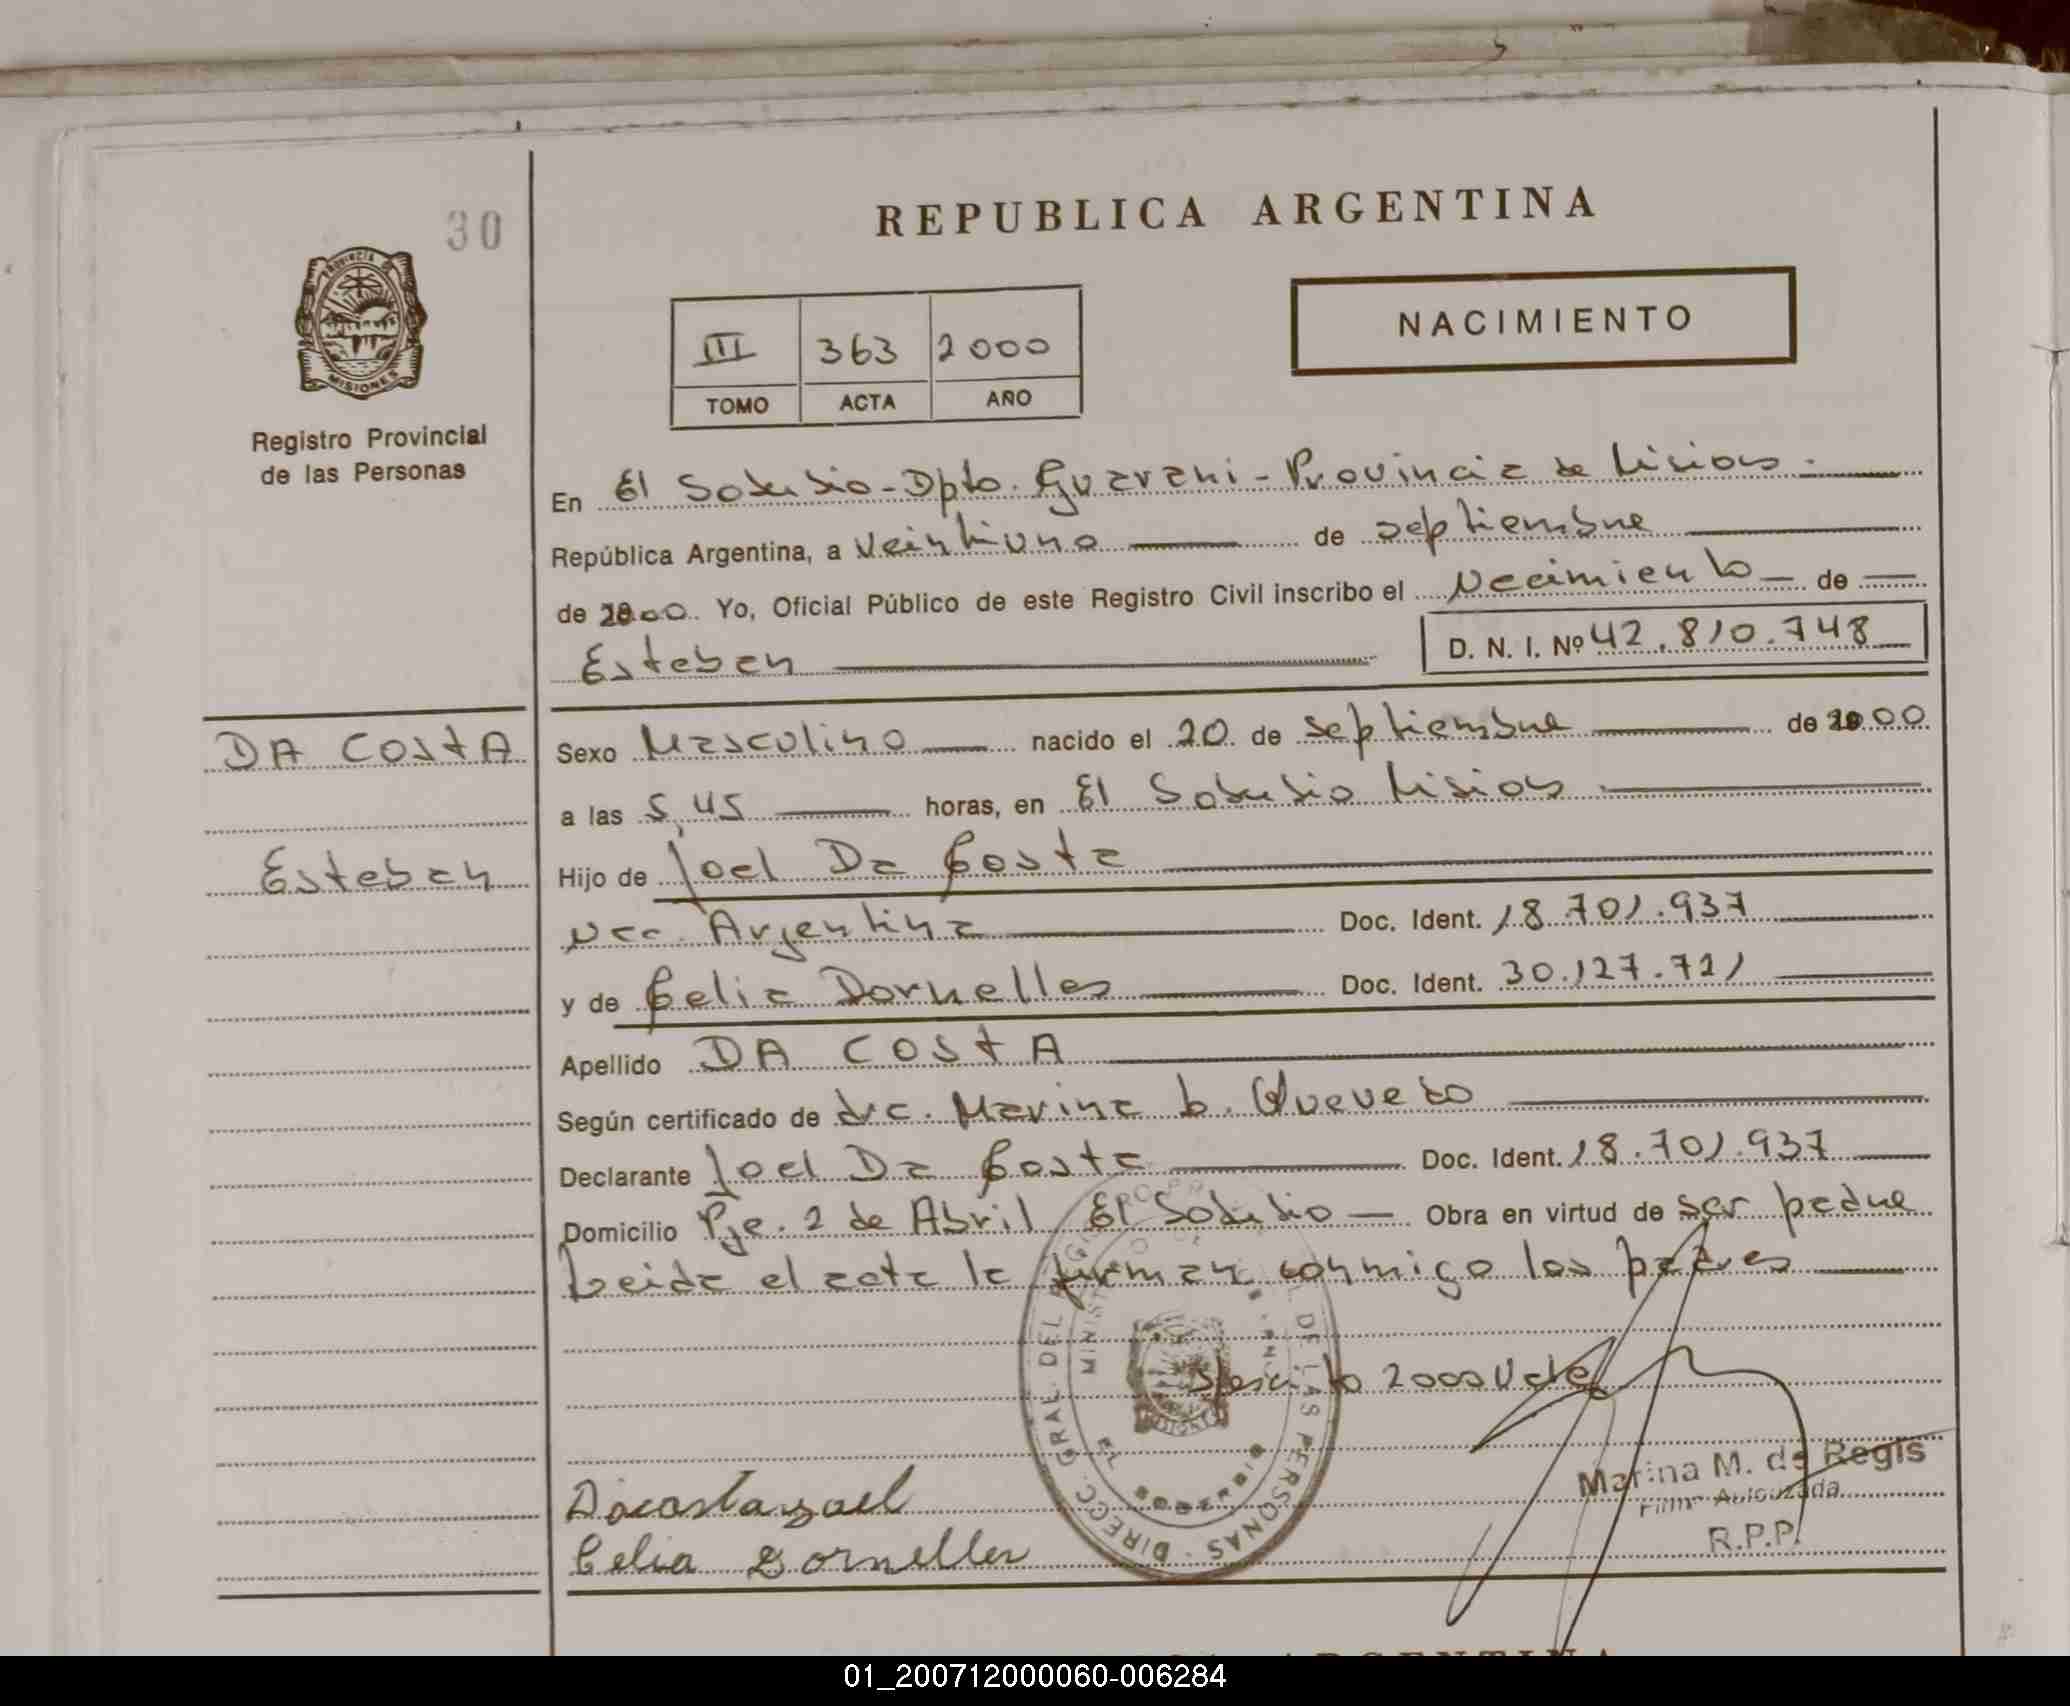 30
PROVINCIA DE
MISIONES
Registro Provincial
de las Personas
REPUBLICA ARGENTINA
III 363 2000
TOMO ACTA AÑO
NACIMIENTO
En El Soberbio - Dpto. Guarani - Provincia de Misiones.
República Argentina, a Veintiuno de septiembre
de 2000. Yo, Oficial Público de este Registro Civil inscribo el Nacimiento de
Esteban D. N. I. Nº 42.810.748
DA COSTA
Esteban
Sexo Masculino nacido el 20 de septiembre de 2000
a las 5,45 horas, en El Soberbio Misiones
Hijo de Joel Da Costa
Nac. Argentina Doc. Ident. 18.701.937
y de Celia Dornelles Doc. Ident. 30.127.721
Apellido DA COSTA
Según certificado de dra. Marina b. Quevedo
Declarante Joel Da Costa Doc. Ident. 18.701.937
Domicilio Pje. 2 de Abril El Soberbio Obra en virtud de ser padre
Leida el acta la firman conmigo los padres
2000 Vale
DIRECC. GRAL. DEL DE LAS PERSONAS
GOBIERNO
Marina M. de Regis
Firma Autorizada
R.P.P.
Dacosta yoel
Celia Dornelles
ARGENTINA
01_200712000060-006284